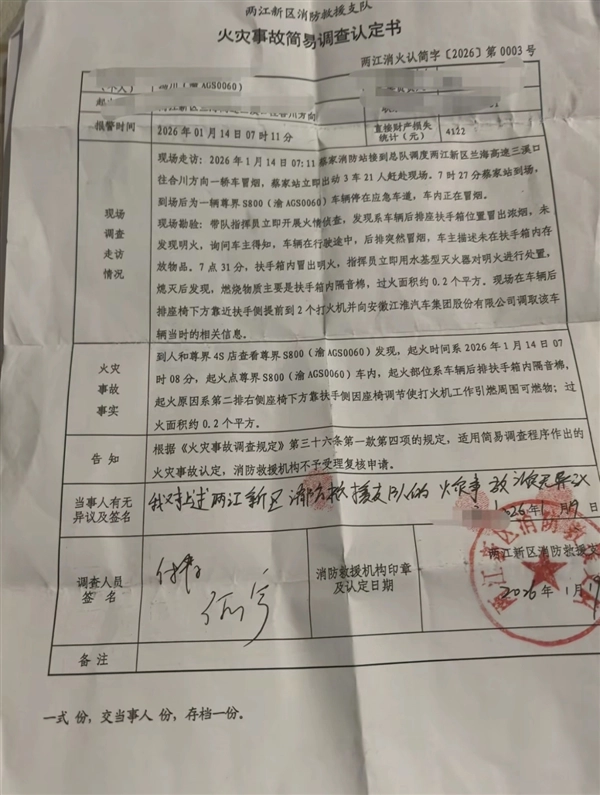 两江新区消防救援支队
火灾事故简易调查认定书
两江消火认简字〔2026〕第 0003 号
(渝 AGS0060)
报警时间
2026 年 01 月 14 日 07 时 11 分
直接财产损失
统计（元）
4122
现场
调查
走访
情况
现场走访：2026 年 1 月 14 日 07:11 蔡家消防站接到总队调度两江新区兰海高速三溪口
往合川方向一轿车冒烟，蔡家站立即出动 3 车 21 人赶赴现场。7 时 27 分蔡家站到场，
到场后为一辆尊界 S800（渝 AGS0060）车辆停在应急车道，车内正在冒烟。
现场勘验：带队指挥员立即开展火情侦查，发现系车辆后排座扶手箱位置冒出浓烟，未
发现明火，询问车主得知，车辆在行驶途中，后排突然冒烟，车主描述未在扶手箱内存
放物品。7 点 31 分，扶手箱内冒出明火，指挥员立即用水基型灭火器对明火进行处置，
熄灭后发现，燃烧物质主要是扶手箱内隔音棉，过火面积约 0.2 个平方。现场在车辆后
排座椅下方靠近扶手侧提前到 2 个打火机并向安徽江淮汽车集团股份有限公司调取该车
辆当时的相关信息。
火灾
事故
事实
到人和尊界 4S 店查看尊界 S800（渝 AGS0060）发现，起火时间系 2026 年 1 月 14 日 07
时 08 分，起火点尊界 S800（渝 AGS0060）车内，起火部位系车辆后排扶手箱内隔音棉，
起火原因系第二排右侧座椅下方靠扶手侧因座椅调节使打火机工作引燃周围可燃物；过
火面积约 0.2 个平方。
告 知
根据《火灾事故调查规定》第三十六条第一款第四项的规定，适用简易调查程序作出的
火灾事故认定，消防救援机构不予受理复核申请。
当事人有无
异议及签名
我对上述两江新区消防救援支队的火灾事故认定无异议
2026年1月19日
调查人员
签 名
消防救援机构印章
及认定日期
两江新区消防救援支
2026 年 1 月 19
备 注
一式 份，交当事人 份，存档一份。